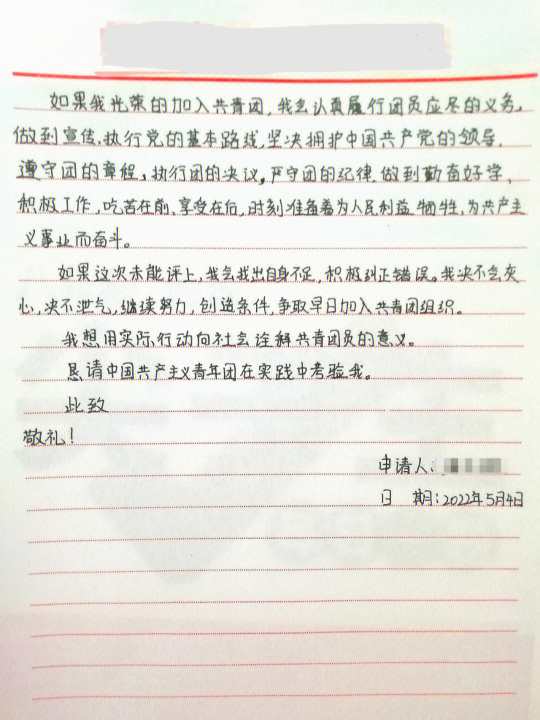 如果我光荣的加入共青团，我会认真履行团员应尽的义务，
做到宣传、执行党的基本路线，坚决拥护中国共产党的领导，
遵守团的章程，执行团的决议，严守团的纪律，做到勤奋好学、
积极工作，吃苦在前、享受在后，时刻准备着为人民利益牺牲，为共产主
义事业而奋斗。
如果这次未能评上，我会找出自身不足，积极纠正错误。我决不会灰
心，决不泄气，继续努力，创造条件，争取早日加入共青团组织。
我想用实际行动向社会诠解共青团员的意义。
恳请中国共产主义青年团在实践中考验我。
此致
敬礼！
申请人：
日 期：2022年5月4日